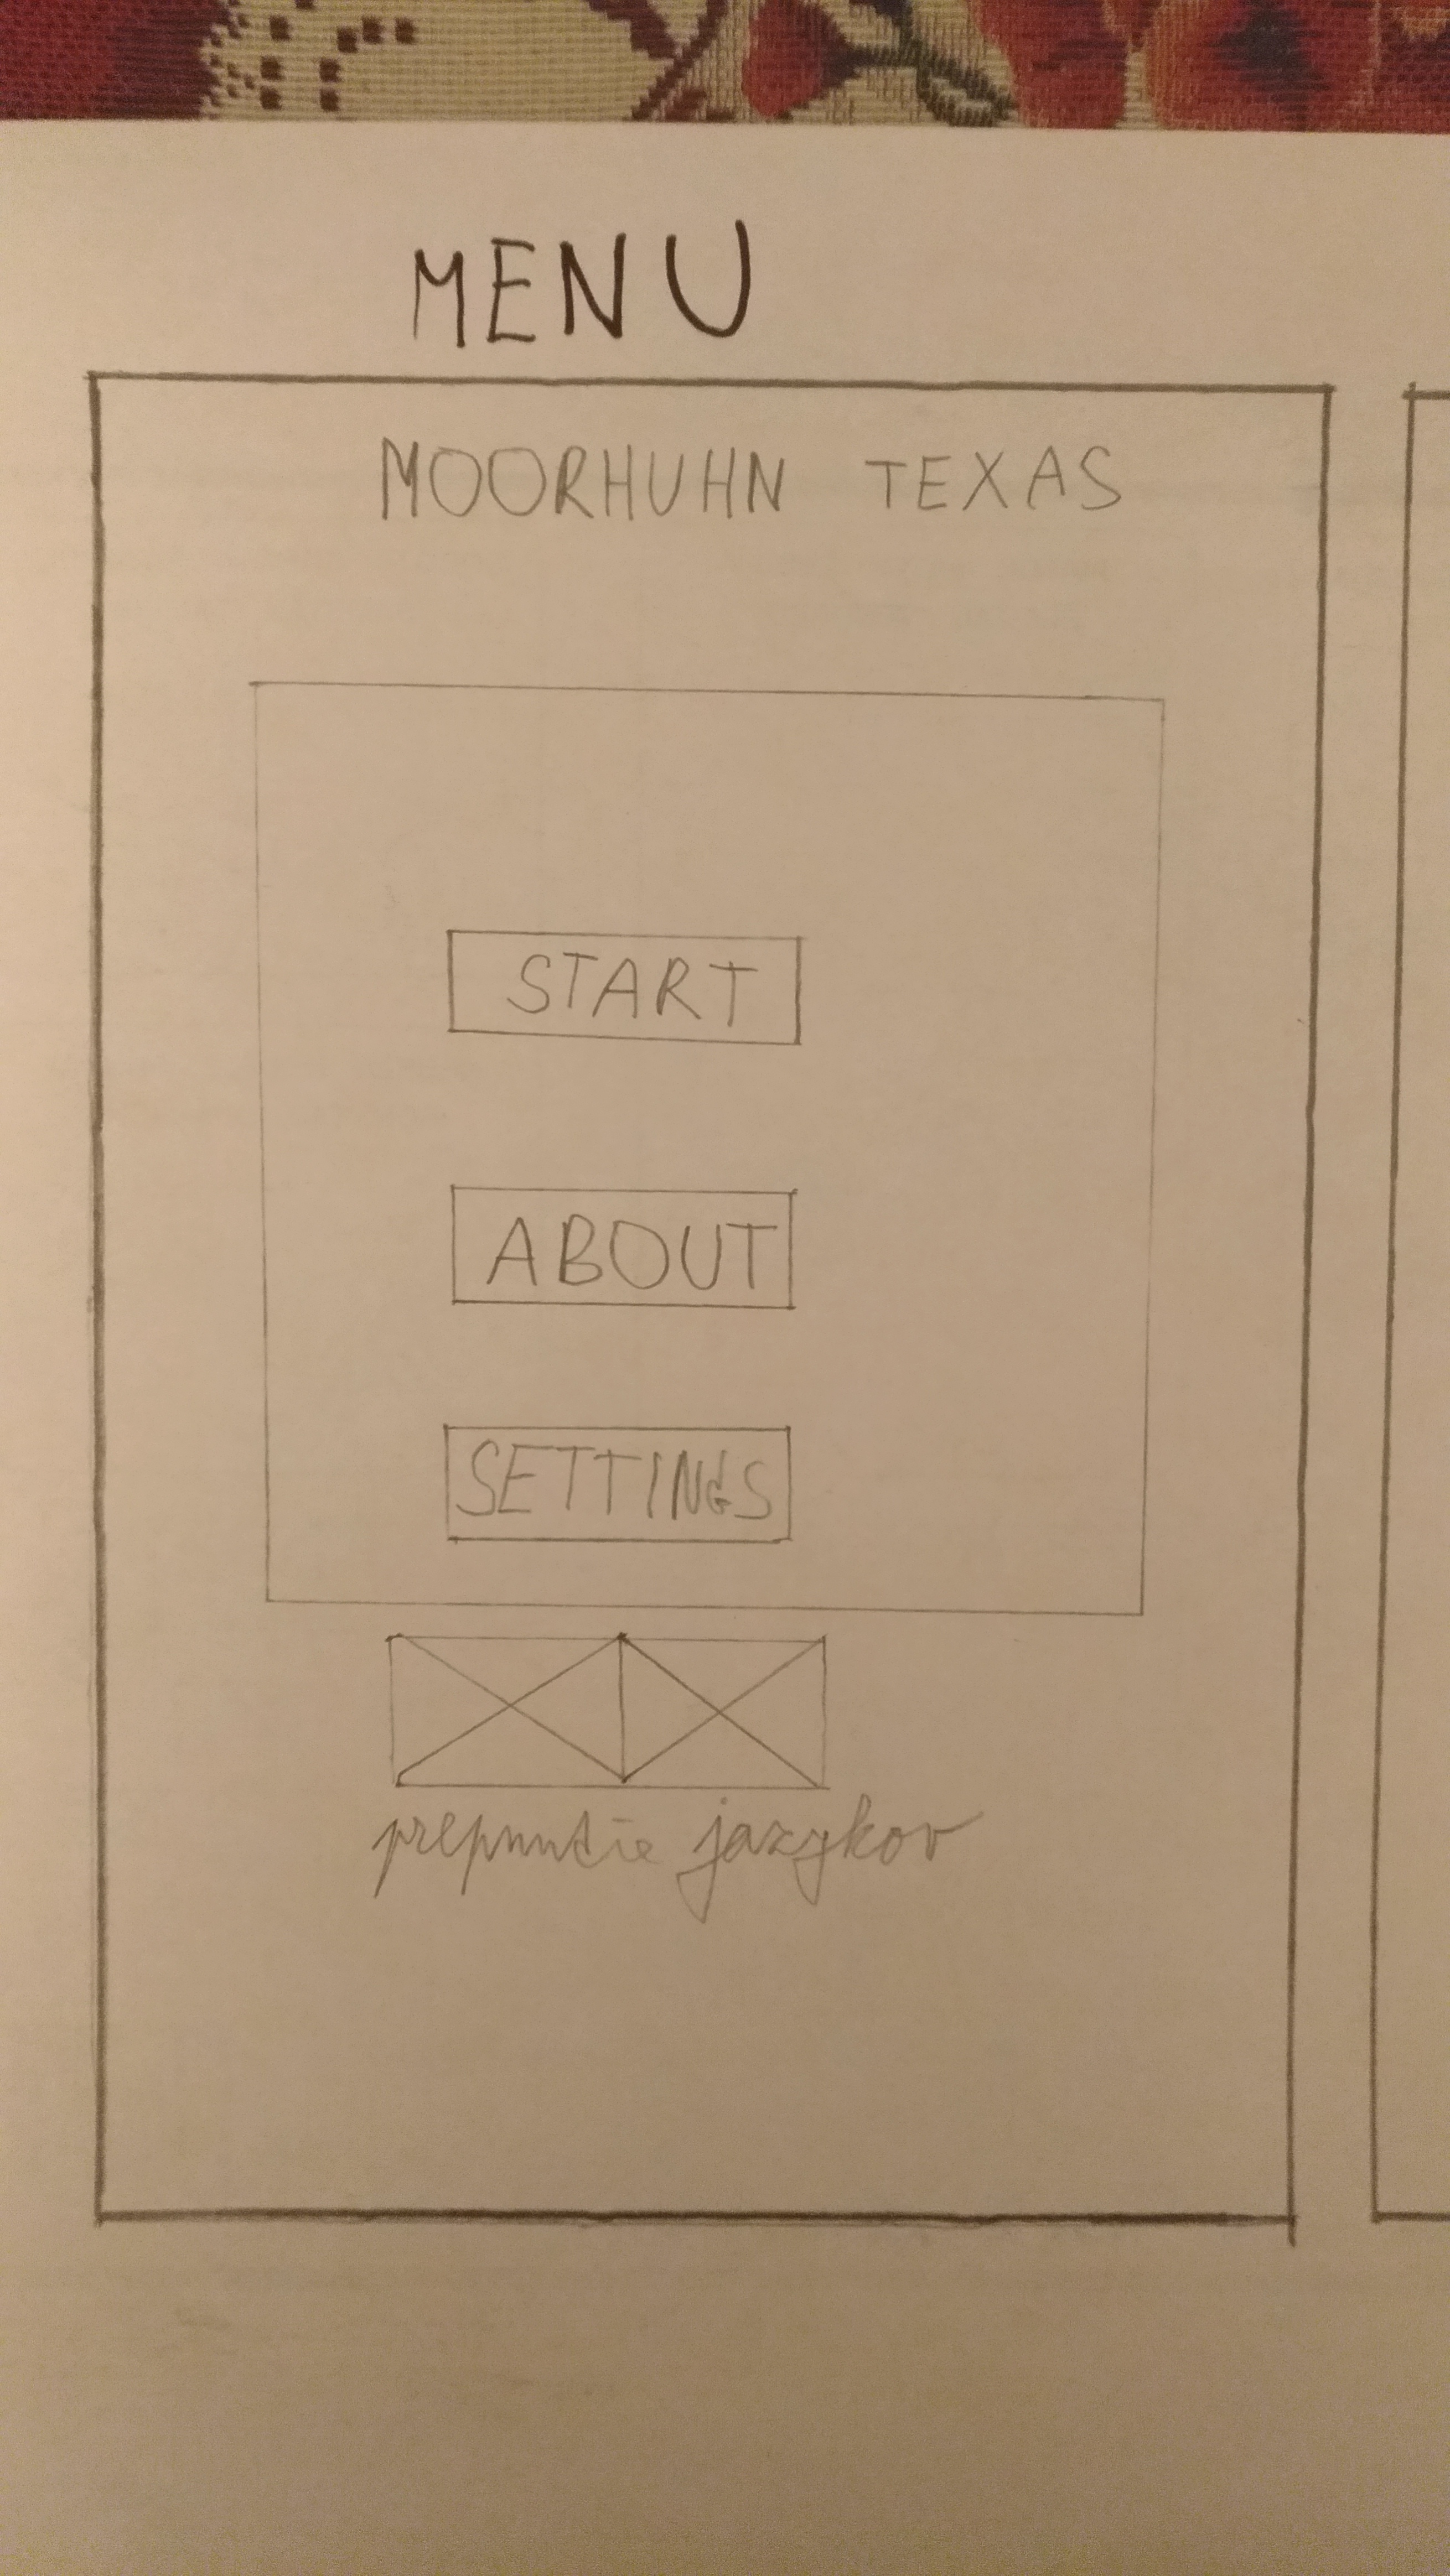 MENU
MOORHUHN TEXAS
START
ABOUT
SETTINGS
prepnutie jazykov